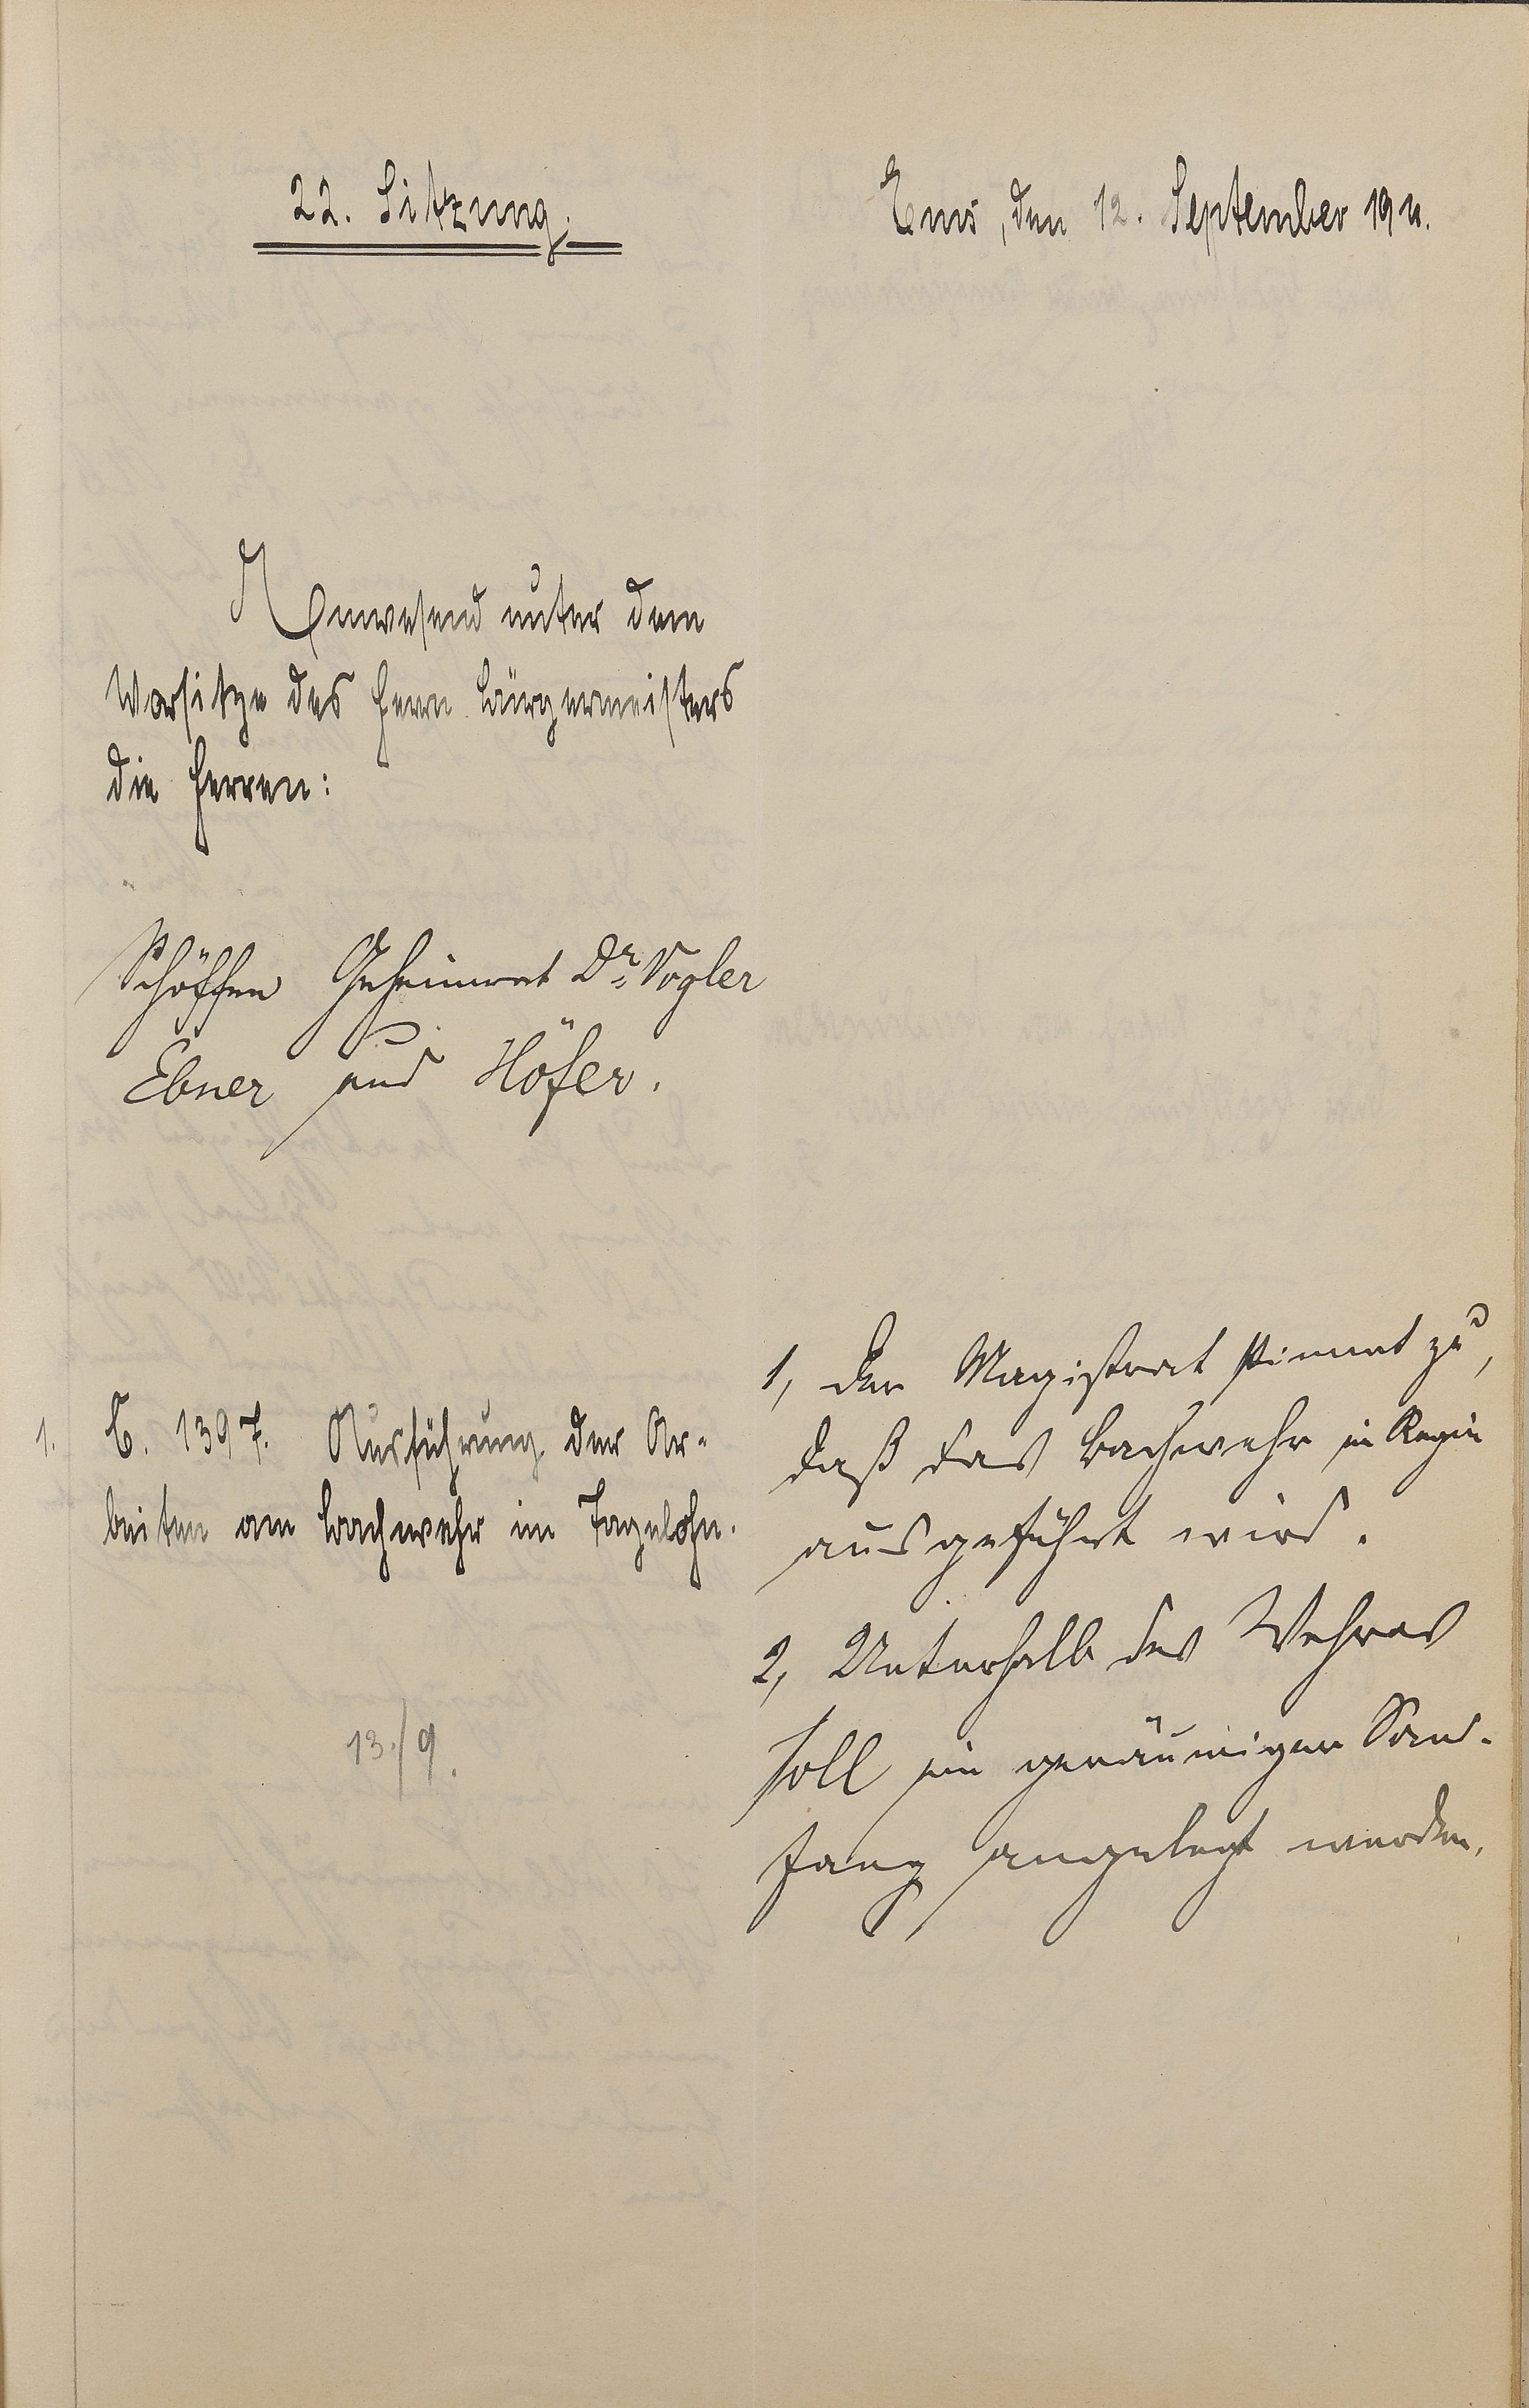 22. Sitzung.
Ems, den 12. September 1911.
Anwesend unter dem
Vorsitze des Herrn Bürgermeisters
die Herren:
Schöffen Geheimrat Dr. Vogler
Ebner und Höfer.
1. C. 1397. Ausführung der Ar-
beiten am Bachwehr im Tagelohn.
13./9.
1, Der Magistrat stimmt zu,
daß das Bachwehr in Regie
ausgeführt wird.
2, Unterhalb des Wehres
soll ein geräumiger Sand-
fang angelegt werden.